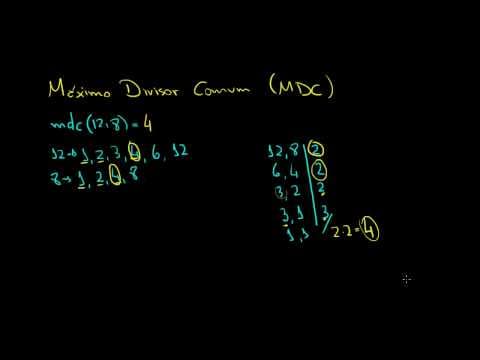 Máximo Divisor Comum (MDC)
mdc(12,8)=4
12→ 1, 2, 3, 4, 6, 12
8→ 1, 2, 4, 8
12, 8 | 2
6, 4 | 2
3, 2 | 2
3, 1 | 3
1, 1 / 2.2=4